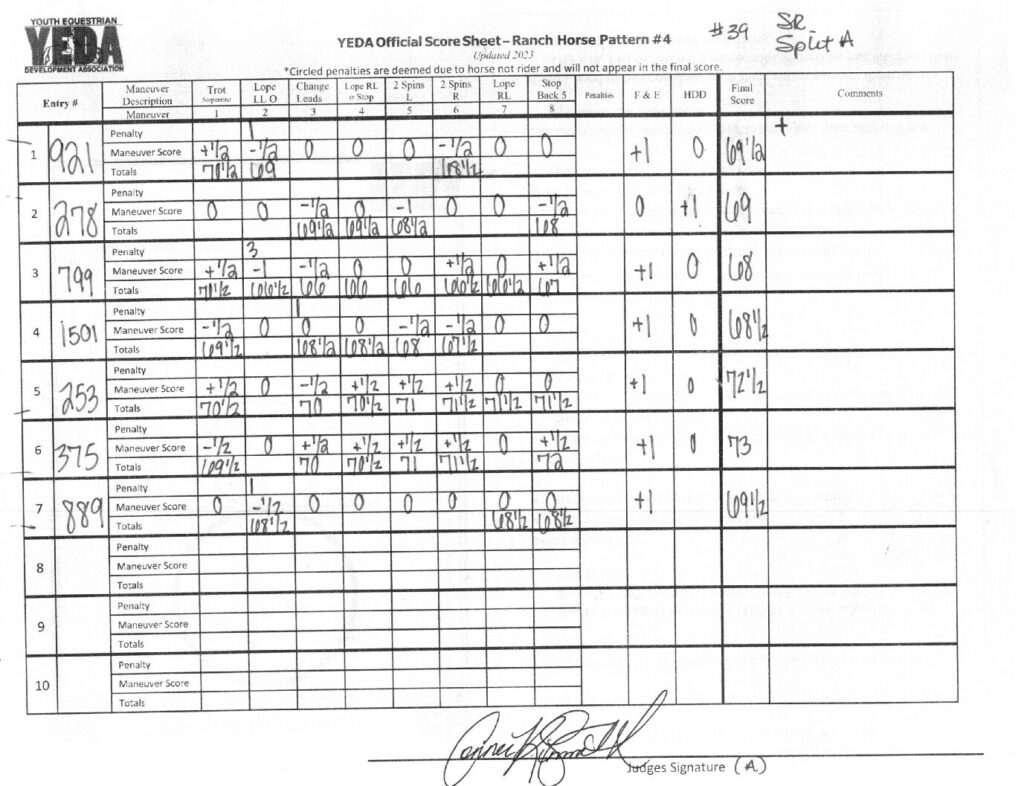 YOUTH EQUESTRIAN
YEDA
DEVELOPMENT ASSOCIATION
YEDA Official Score Sheet – Ranch Horse Pattern #4
#39 SR Split A
Updated 2023
*Circled penalties are deemed due to horse not rider and will not appear in the final score.
Entry # Maneuver Description Trot Serpentine Lope LL O Change Leads Lope RL o Stop 2 Spins L 2 Spins R Lope RL Stop Back 5 Penalties F & E HDD Final Score Comments
Maneuver 1 2 3 4 5 6 7 8
1 921 Penalty 1
Maneuver Score +1/2 -1/2 0 0 0 -1/2 0 0 +1 0 69 1/2 +
Totals 70 1/2 69 68 1/2
2 278 Penalty
Maneuver Score 0 0 -1/2 0 -1 0 0 -1/2 0 +1 69
Totals 69 1/2 69 1/2 68 1/2 68
3 799 Penalty 3
Maneuver Score +1/2 -1 -1/2 0 0 +1/2 0 +1/2 +1 0 68
Totals 70 1/2 66 1/2 66 66 66 66 1/2 66 1/2 67
4 1501 Penalty 1
Maneuver Score -1/2 0 0 0 -1/2 -1/2 0 0 +1 0 68 1/2
Totals 69 1/2 68 1/2 68 1/2 68 67 1/2
5 253 Penalty
Maneuver Score +1/2 0 -1/2 +1/2 +1/2 +1/2 0 0 +1 0 72 1/2
Totals 70 1/2 70 70 1/2 71 71 1/2 71 1/2 71 1/2
6 375 Penalty
Maneuver Score -1/2 0 +1/2 +1/2 +1/2 +1/2 0 +1/2 +1 0 73
Totals 69 1/2 70 70 1/2 71 71 1/2 72
7 889 Penalty 1
Maneuver Score 0 -1/2 0 0 0 0 0 0 +1 69 1/2
Totals 68 1/2 68 1/2 68 1/2
8 Penalty
Maneuver Score
Totals
9 Penalty
Maneuver Score
Totals
10 Penalty
Maneuver Score
Totals
Judges Signature (A)